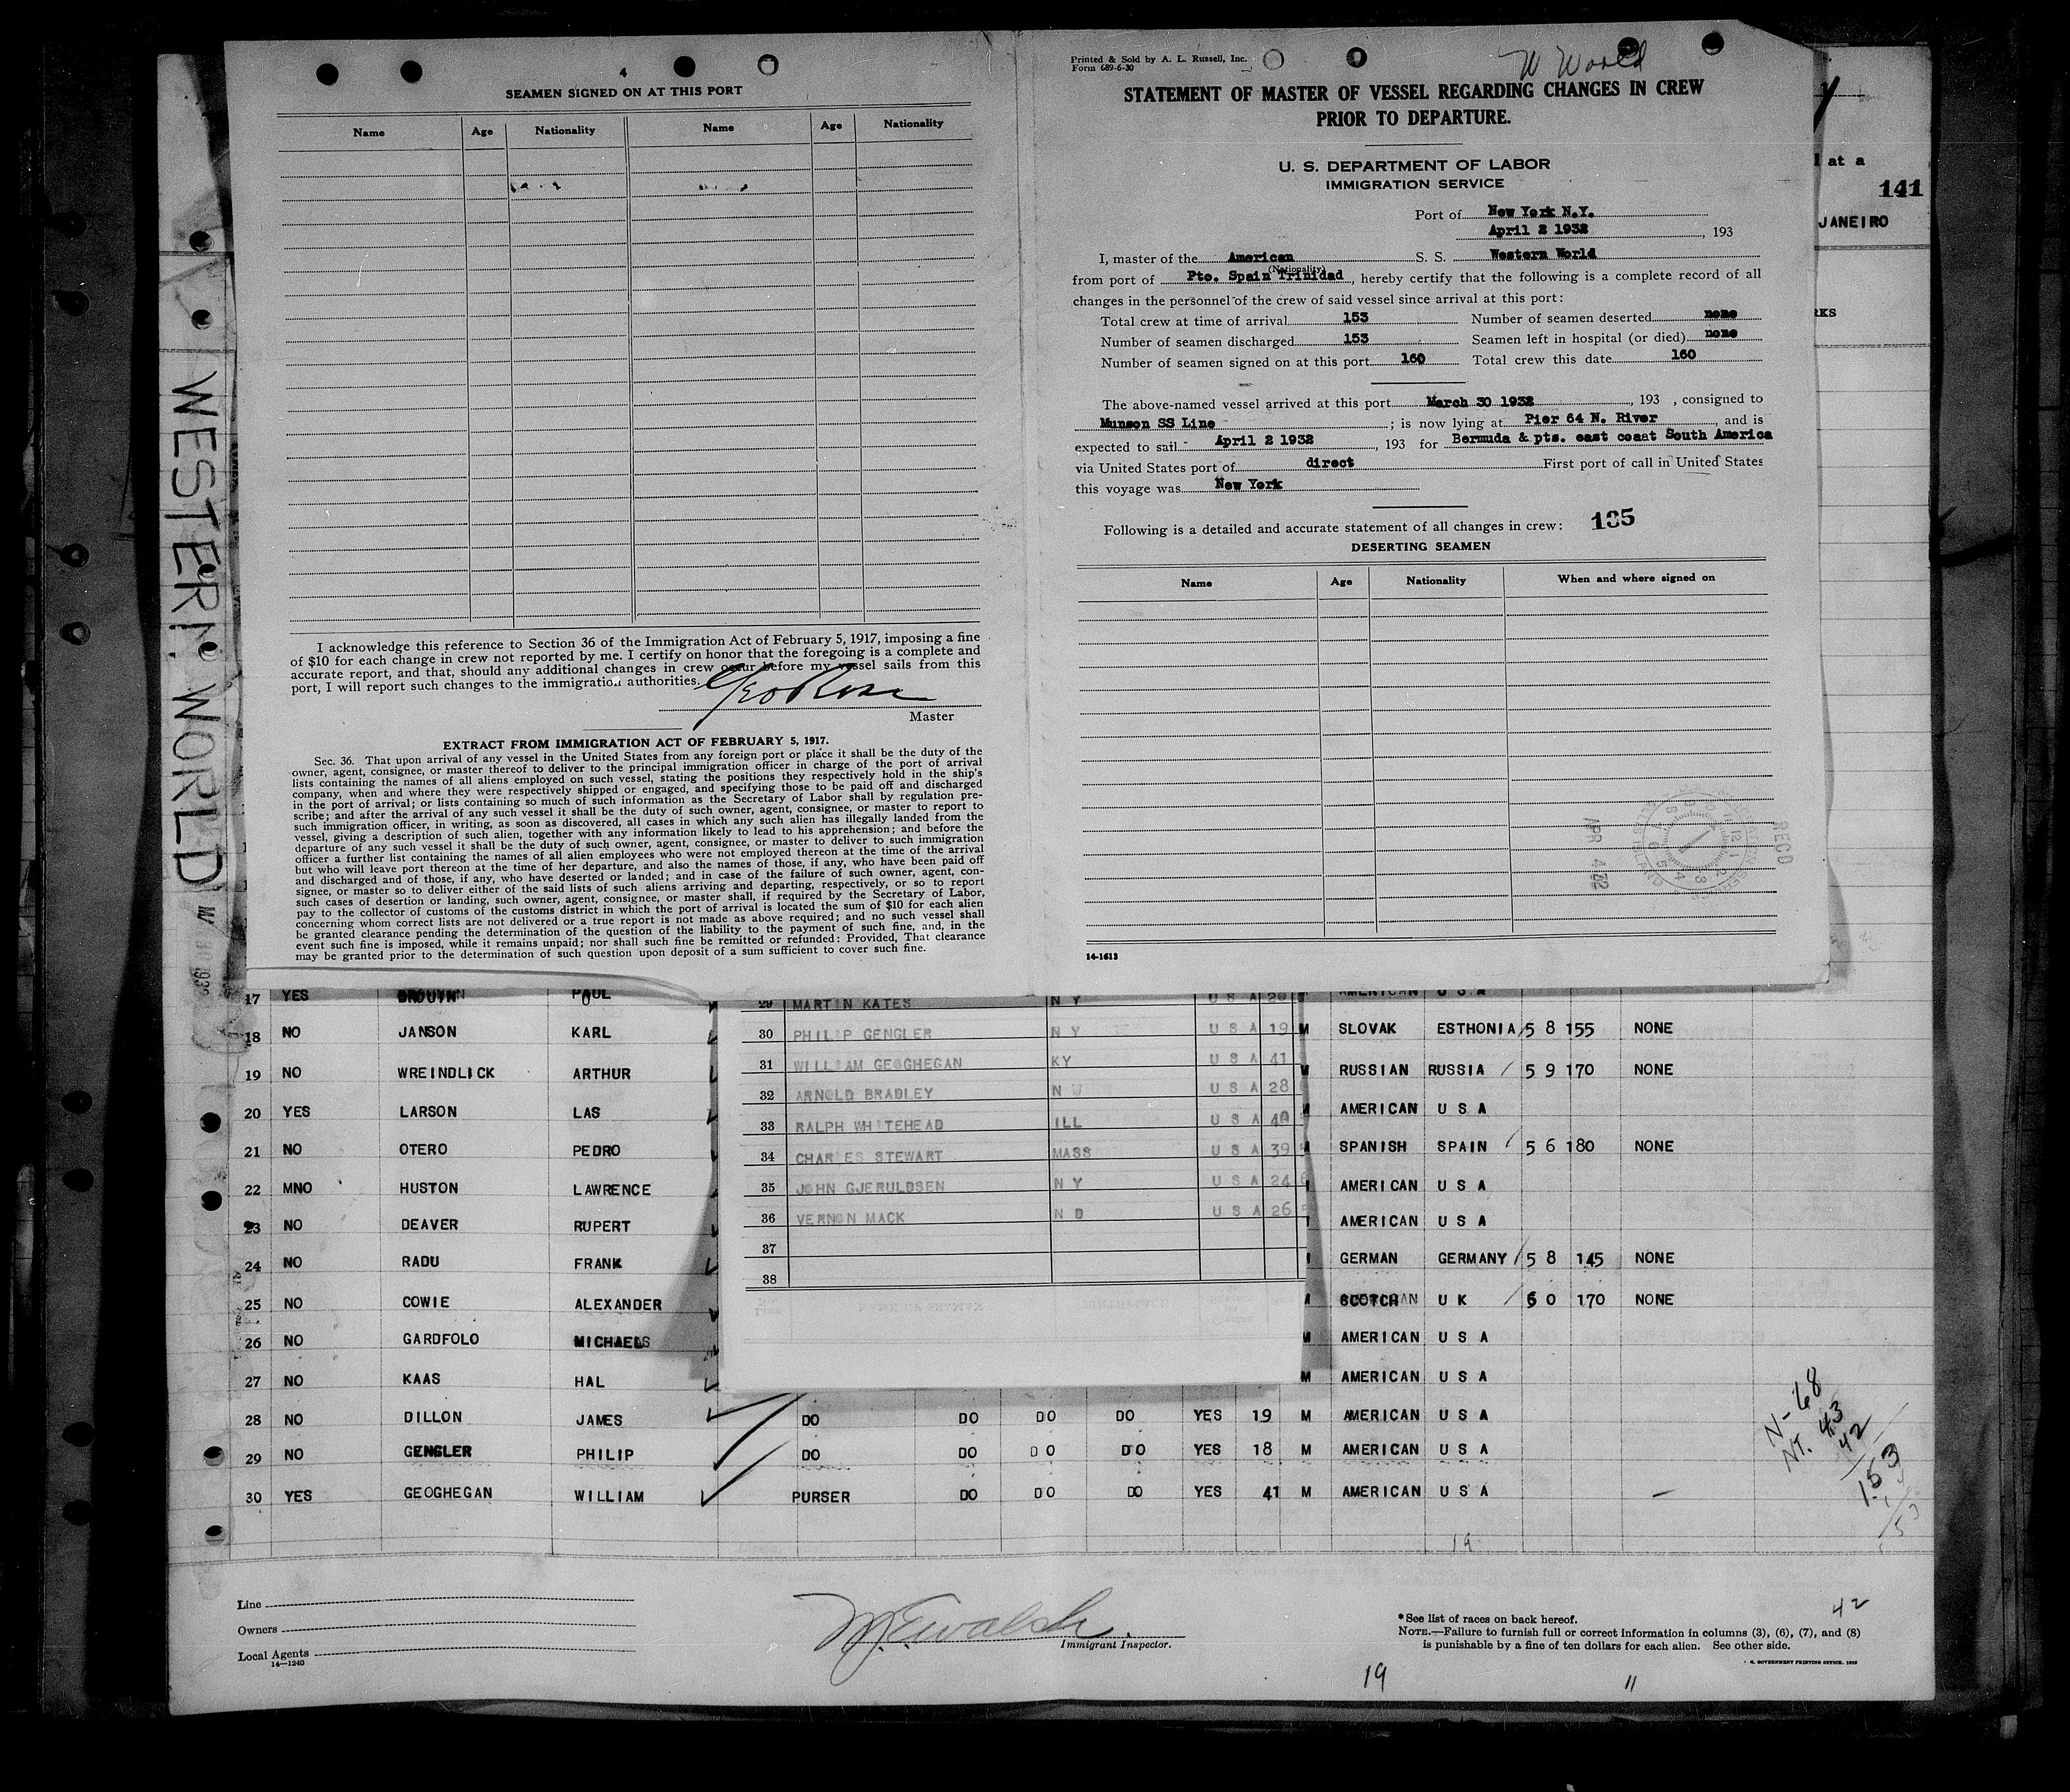 WESTERN WORLD
SEAMEN SIGNED ON AT THIS PORT
Name Age Nationality Name Age Nationality
I acknowledge this reference to Section 36 of the Immigration Act of February 5, 1917, imposing a fine
of $10 for each change in crew not reported by me. I certify on honor that the foregoing is a complete and
accurate report, and that, should any additional changes in crew occur before my vessel sails from this
port, I will report such changes to the immigration authorities.
Geo Rose
Master
EXTRACT FROM IMMIGRATION ACT OF FEBRUARY 5, 1917.
Sec. 36. That upon arrival of any vessel in the United States from any foreign port or place it shall be the duty of the
owner, agent, consignee, or master thereof to deliver to the principal immigration officer in charge of the port of arrival
lists containing the names of all aliens employed on such vessel, stating the positions they respectively hold in the ship's
company, when and where they were respectively shipped or engaged, and specifying those to be paid off and discharged
in the port of arrival; or lists containing so much of such information as the Secretary of Labor shall by regulation pre-
scribe; and after the arrival of any such vessel it shall be the duty of such owner, agent, consignee, or master to report to
such immigration officer, in writing, as soon as discovered, all cases in which any such alien has illegally landed from the
vessel, giving a description of such alien, together with any information likely to lead to his apprehension; and before the
departure of any such vessel it shall be the duty of such owner, agent, consignee, or master to deliver to such immigration
officer a further list containing the names of all alien employees who were not employed thereon at the time of the arrival
but who will leave port thereon at the time of her departure, and also the names of those, if any, who have been paid off
and discharged and of those, if any, who have deserted or landed; and in case of the failure of such owner, agent, con-
signee, or master so to deliver either of the said lists of such aliens arriving and departing, respectively, or so to report
such cases of desertion or landing, such owner, agent, consignee, or master shall, if required by the Secretary of Labor,
pay to the collector of customs of the customs district in which the port of arrival is located the sum of $10 for each alien
concerning whom correct lists are not delivered or a true report is not made as above required; and no such vessel shall
be granted clearance pending the determination of the question of the liability to the payment of such fine, and, in the
event such fine is imposed, while it remains unpaid; nor shall such fine be remitted or refunded: Provided, That clearance
may be granted prior to the determination of such question upon deposit of a sum sufficient to cover such fine.
Printed & Sold by A. L. Russell, Inc.
Form 689-6-30
W World
STATEMENT OF MASTER OF VESSEL REGARDING CHANGES IN CREW
PRIOR TO DEPARTURE.
U. S. DEPARTMENT OF LABOR
IMMIGRATION SERVICE
Port of New York N.Y.
April 2 1932, 193
I, master of the American S. S. Western World
(Nationality)
from port of Pto. Spain Trinidad, hereby certify that the following is a complete record of all
changes in the personnel of the crew of said vessel since arrival at this port:
Total crew at time of arrival 153 Number of seamen deserted none
Number of seamen discharged 153 Seamen left in hospital (or died) none
Number of seamen signed on at this port 160 Total crew this date 160
The above-named vessel arrived at this port March 30 1932, 193 , consigned to
Munson SS Line; is now lying at Pier 64 N. River, and is
expected to sail April 2 1932, 193 for Bermuda & pts. east coast South America
via United States port of direct First port of call in United States
this voyage was New York
Following is a detailed and accurate statement of all changes in crew: 185
DESERTING SEAMEN
Name Age Nationality When and where signed on
REC'D
APR 4 32
14-1613
at a
141
JANEIRO
RKS
17 YES PAUL AMERICAN U S A
18 NO JANSON KARL M SLOVAK ESTHONIA 5 8 155 NONE
19 NO WREINDLICK ARTHUR M RUSSIAN RUSSIA 5 9 170 NONE
20 YES LARSON LAS AMERICAN U S A
21 NO OTERO PEDRO SPANISH SPAIN 5 6 180 NONE
22 MNO HUSTON LAWRENCE AMERICAN U S A
23 NO DEAVER RUPERT AMERICAN U S A
24 NO RADU FRANK GERMAN GERMANY 5 8 145 NONE
25 NO COWIE ALEXANDER SCOTCH U K 6 0 170 NONE
26 NO GARDFOLO MICHAEL M AMERICAN U S A
27 NO KAAS HAL M AMERICAN U S A
28 NO DILLON JAMES DO DO DO DO YES 19 M AMERICAN U S A
29 NO GENGLER PHILIP DO DO DO DO YES 18 M AMERICAN U S A
30 YES GEOGHEGAN WILLIAM PURSER DO DO DO YES 41 M AMERICAN U S A
29 MARTIN KATES N Y U S A 20
30 PHILIP GENGLER N Y U S A 19
31 WILLIAM GEOGHEGAN KY U S A 41
32 ARNOLD BRADLEY N U S A 28
33 RALPH WHITEHEAD ILL U S A 40
34 CHARLES STEWART MASS U S A 39
35 JOHN GJERULDSEN N Y U S A 24
36 VERNON MACK N D U S A 26
37
38
N-68
NT. 43
42
153
19
Line
Owners
Local Agents
14—1240
M. E. Walsh.
Immigrant Inspector.
*See list of races on back hereof.
NOTE.—Failure to furnish full or correct information in columns (3), (6), (7), and (8)
is punishable by a fine of ten dollars for each alien. See other side.
GOVERNMENT PRINTING OFFICE
42
19
11